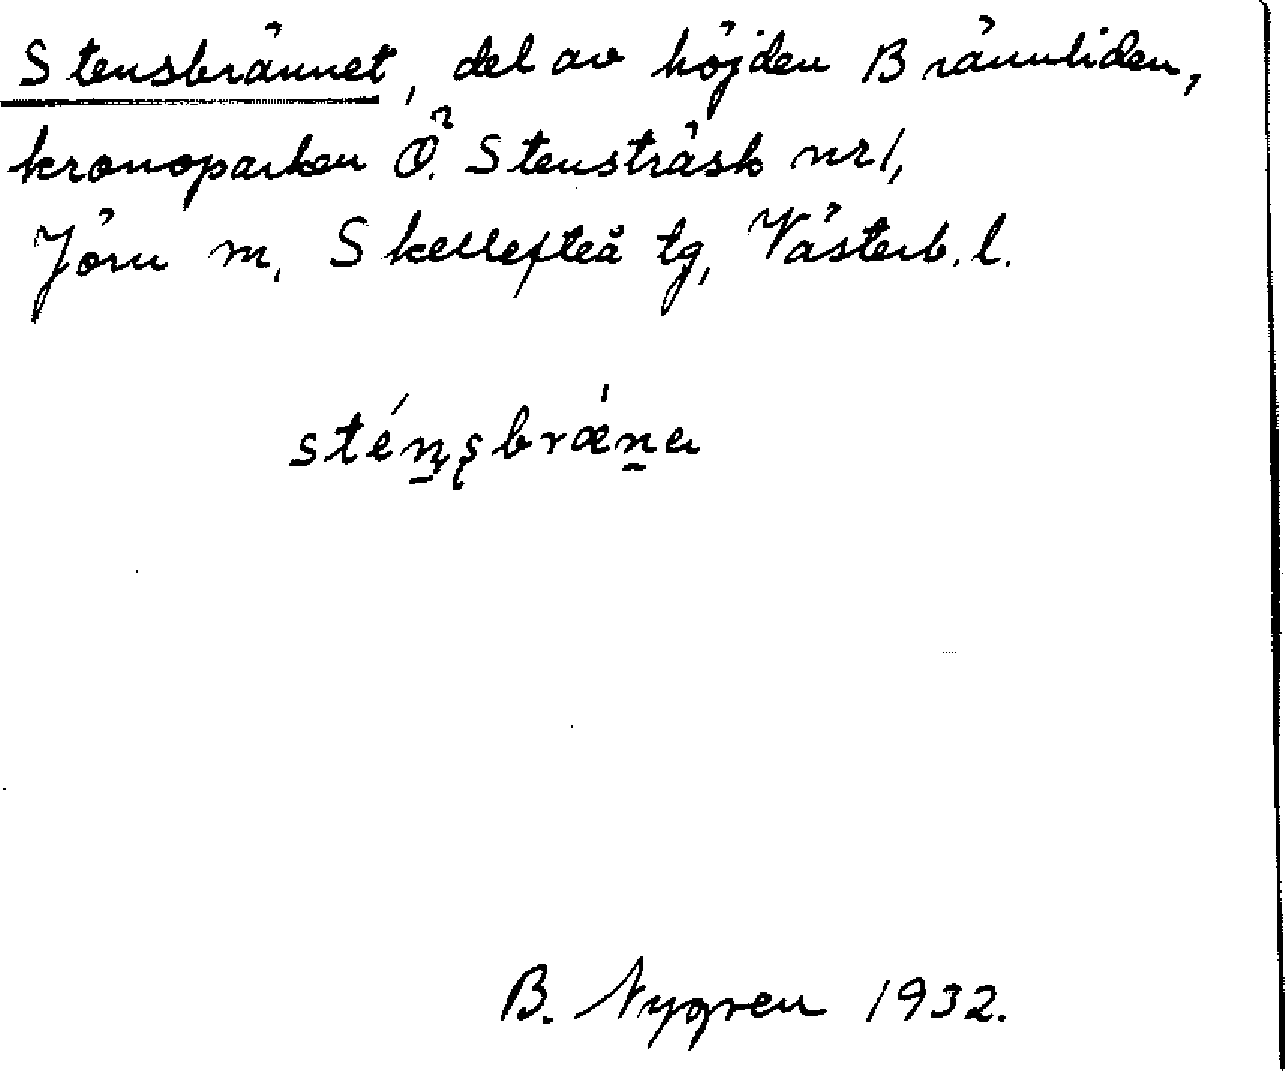 Stensbrännet, del av höjden Brännliden,
kronoparken Ö. Stensträsk nr 1,
Jörn m, Skellefteå tg, Västerb. l.
sténsbrǽna
B. Nygren 1932.